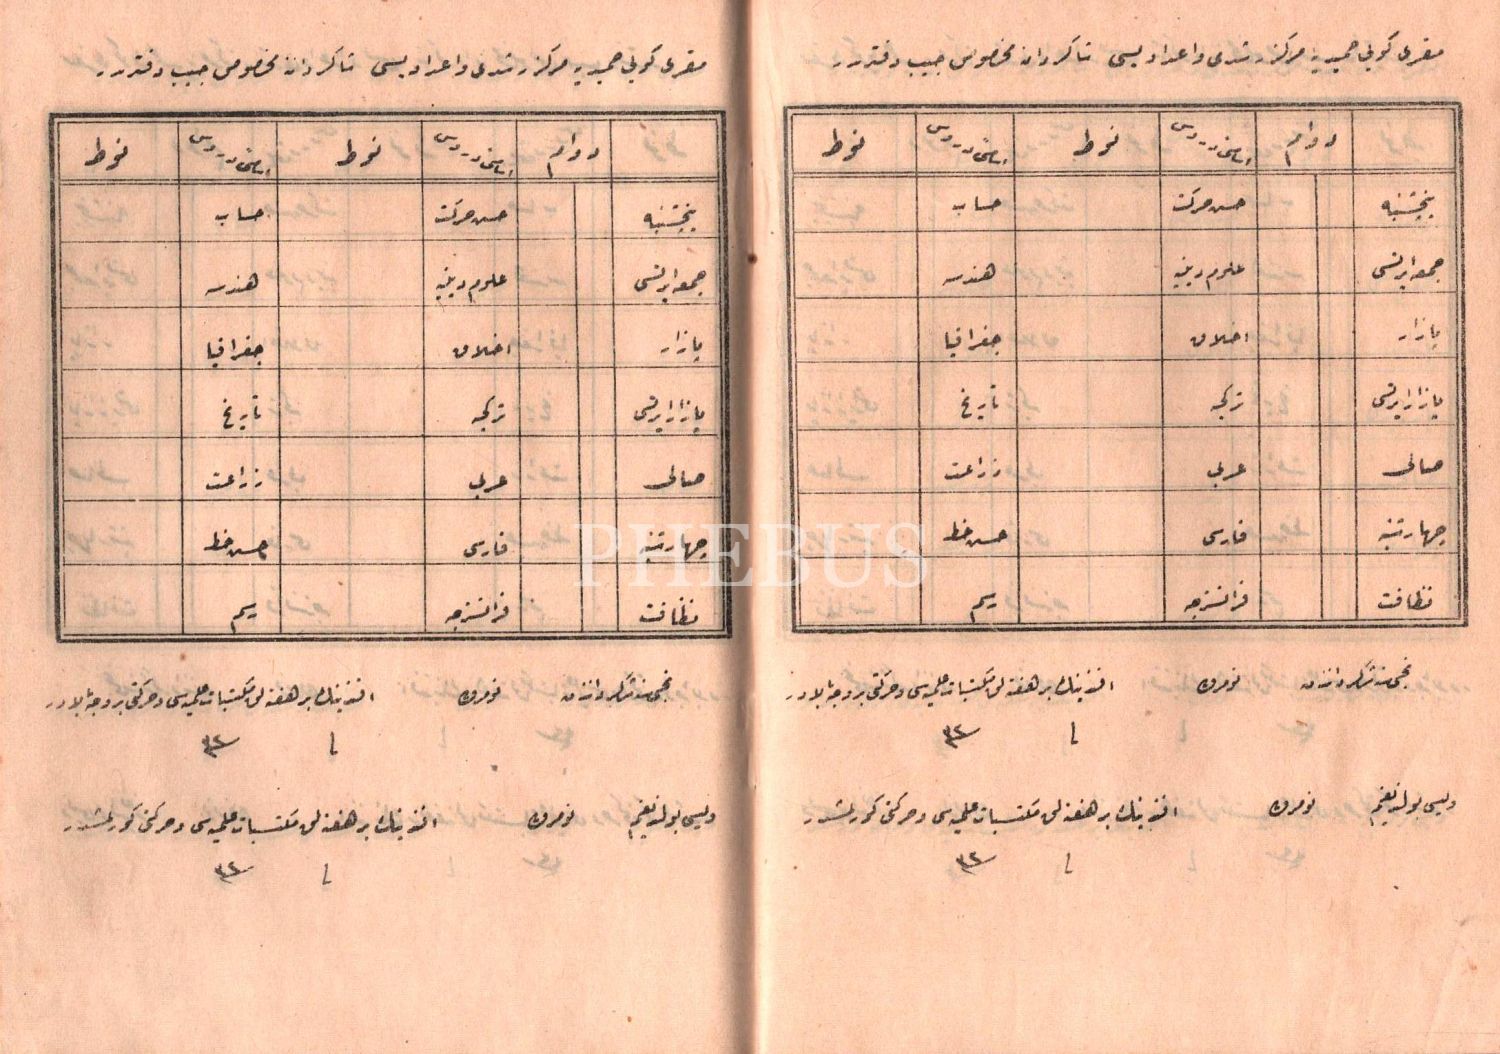 مقری کوبی حمیدیه مرکز رشدی و اعدادیسی شاکردانه مخصوص جیب دفتریدر
دوام اسامئ دروس نوط اسامئ دروس نوط
پنجشنبه حسن حرکت حساب
جمعه ایرتسی علوم دینیه هندسه
بازار اخلاق جغرافیا
بازار ایرتسی ترکجه تاریخ
صالی عربی زراعت
چهارشنبه فارسی حسن خط
نظافت فرانسزجه رسم
نجی سنه شاکرداندن نومرولی افندینك بر هفته لق مکتسبات علمیه سی و حرکتی بر وجه بالادر
ویسی بولندیغم نومرولی افندینك بر هفته لق مکتسبات علمیه سی و حرکتی کورلمشدر
مقری کوبی حمیدیه مرکز رشدی و اعدادیسی شاکردانه مخصوص جیب دفتریدر
دوام اسامئ دروس نوط اسامئ دروس نوط
پنجشنبه حسن حرکت حساب
جمعه ایرتسی علوم دینیه هندسه
بازار اخلاق جغرافیا
بازار ایرتسی ترکجه تاریخ
صالی عربی زراعت
چهارشنبه فارسی حسن خط
نظافت فرانسزجه رسم
نجی سنه شاکرداندن نومرولی افندینك بر هفته لق مکتسبات علمیه سی و حرکتی بر وجه بالادر
ویسی بولندیغم نومرولی افندینك بر هفته لق مکتسبات علمیه سی و حرکتی کورلمشدر
PHEBUS